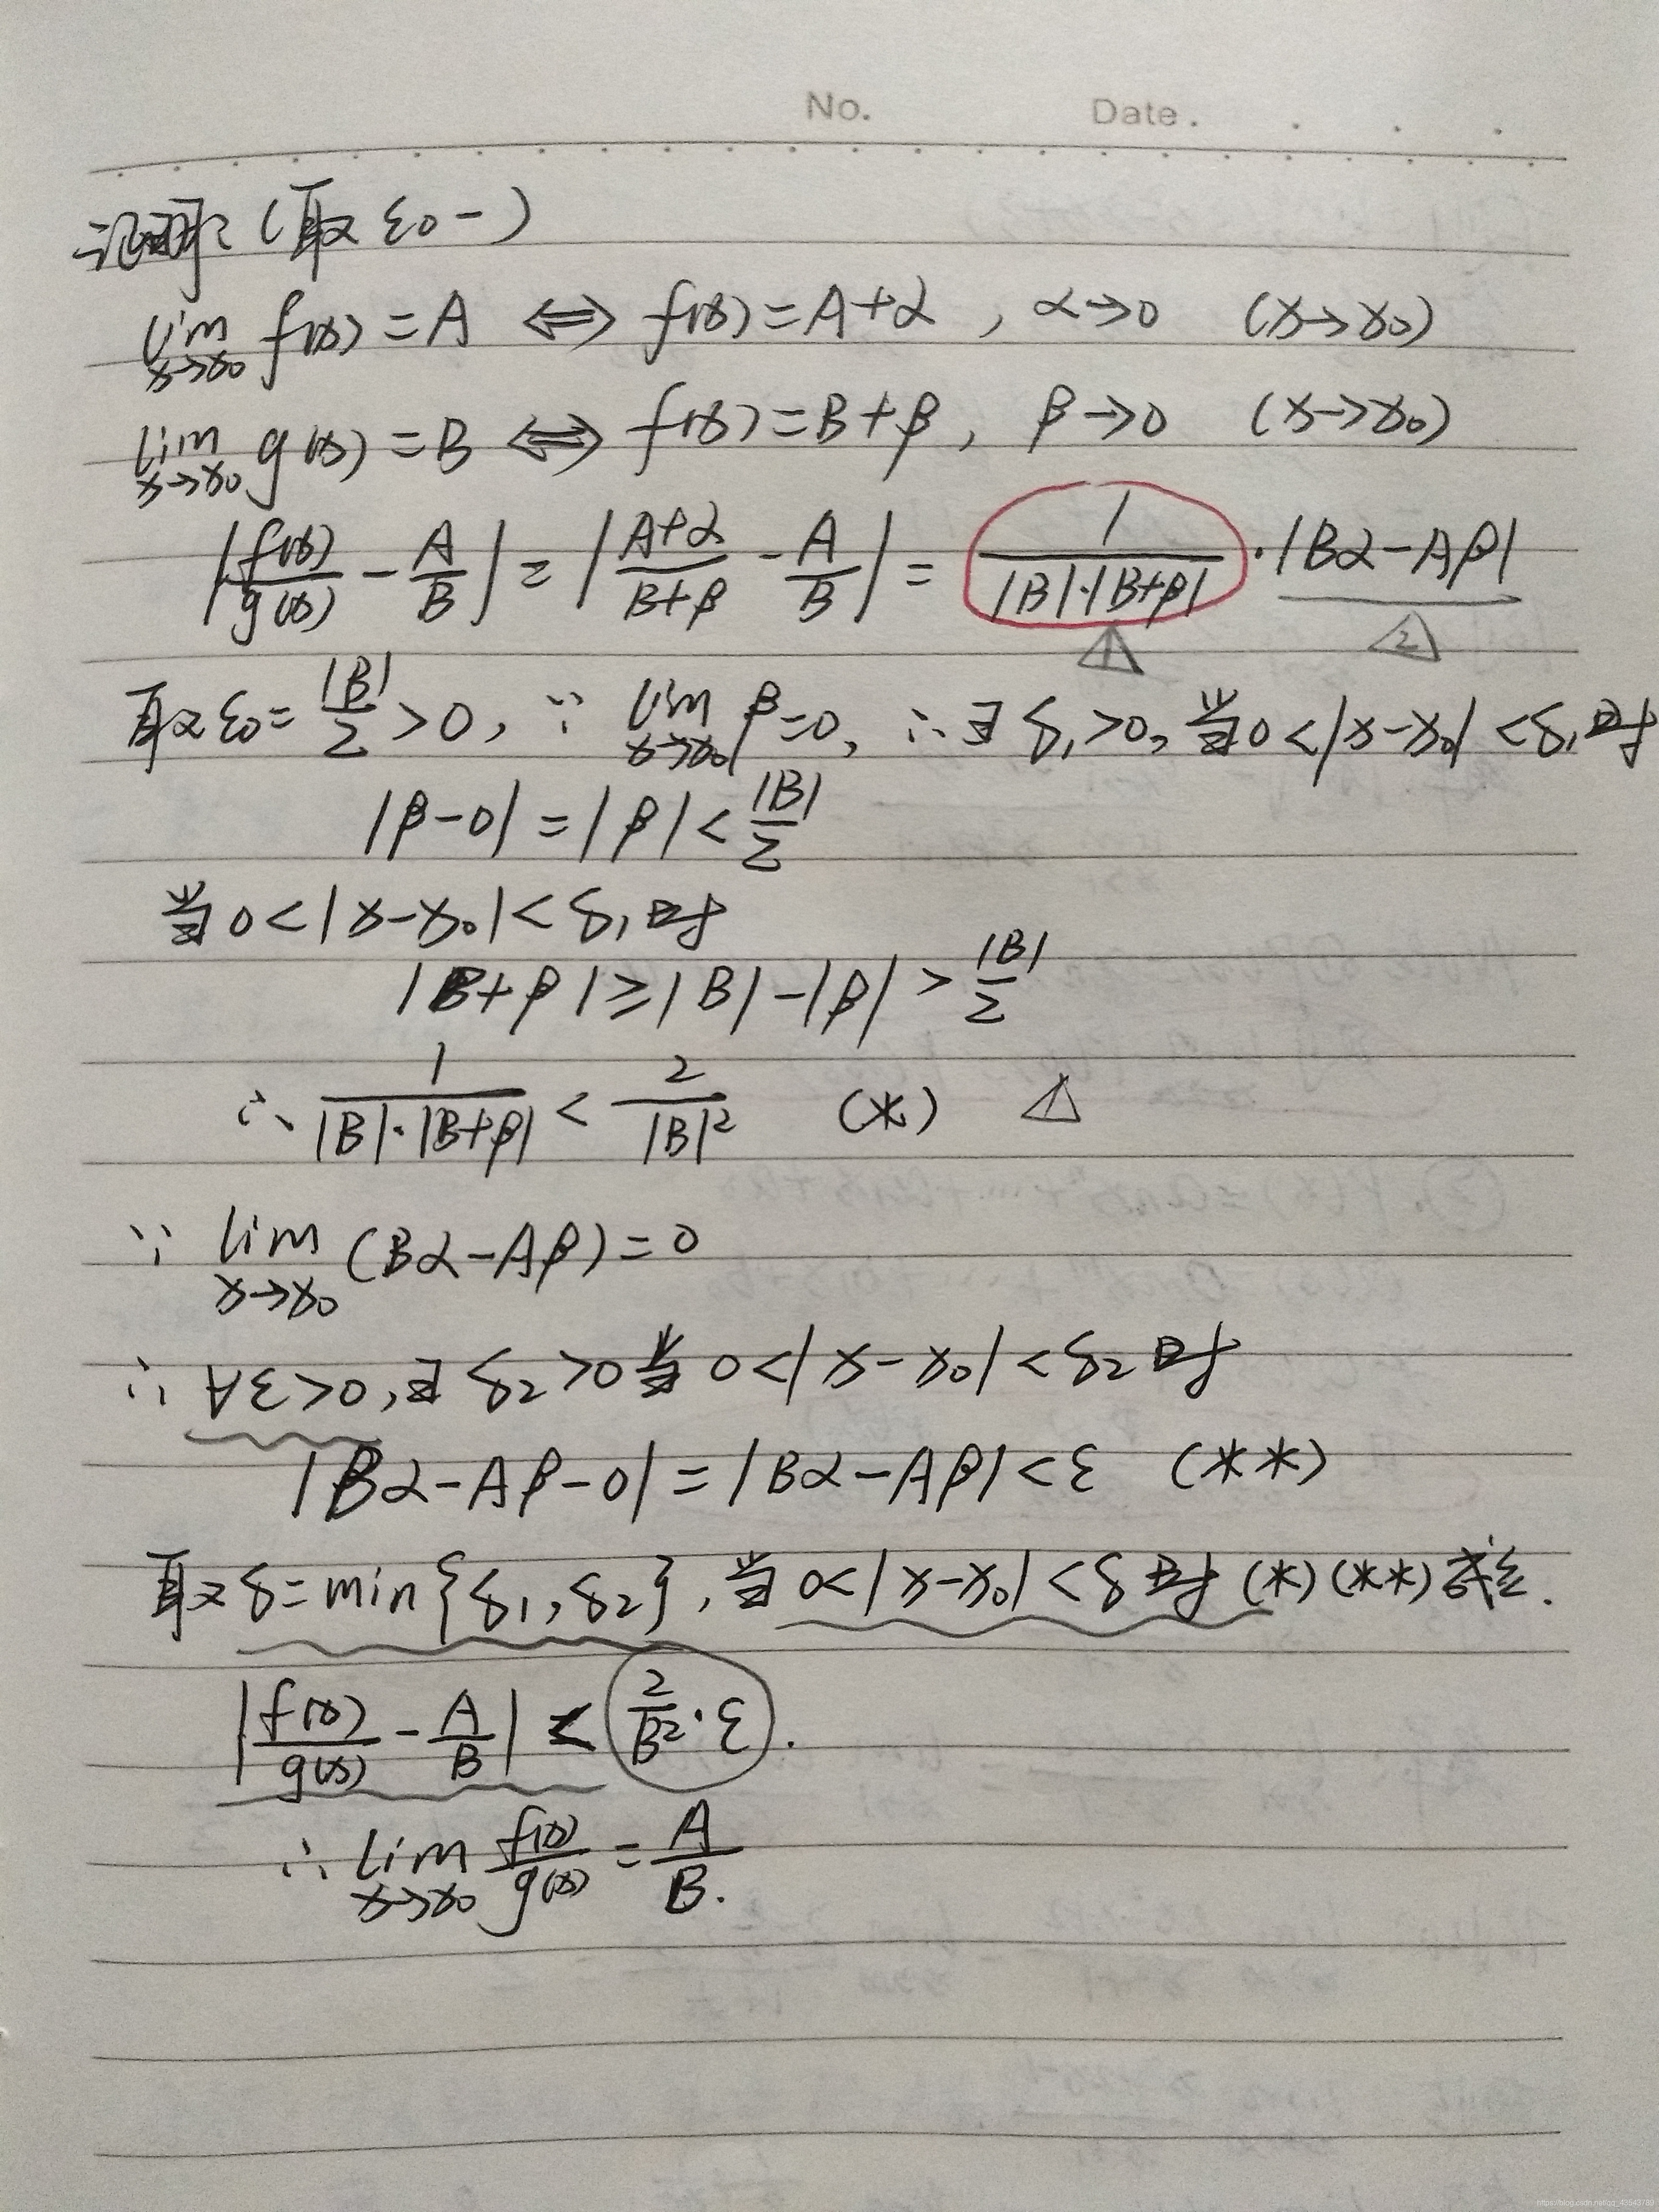 No. Date.
证明: (取 ε₀ -)
lim x→x₀ f(x) = A ⟺ f(x) = A+α , α→0 (x→x₀)
lim x→x₀ g(x) = B ⟺ f(x) = B+β , β→0 (x→x₀)
|f(x)/g(x) - A/B| = |(A+α)/(B+β) - A/B| = 1/(|B|·|B+β|) · |Bα-Aβ|
1 2
取 ε₀ = |B|/2 > 0, ∵ lim x→x₀ β=0, ∴ ∃ δ₁>0, 当 0<|x-x₀|<δ₁ 时
|β-0| = |β| < |B|/2
当 0<|x-x₀|<δ₁ 时
|B+β| ≥ |B|-|β| > |B|/2
∴ 1/(|B|·|B+β|) < 2/|B|² (*) 1
∵ lim x→x₀ (Bα-Aβ) = 0
∴ ∀ε>0, ∃ δ₂>0 当 0<|x-x₀|<δ₂ 时
|Bα-Aβ-0| = |Bα-Aβ| < ε (**)
取 δ=min{δ₁,δ₂}, 当 0<|x-x₀|<δ 时 (*)(**) 成立.
|f(x)/g(x) - A/B| < 2/B²·ε.
∴ lim x→x₀ f(x)/g(x) = A/B.
https://blog.csdn.net/qq_43543789